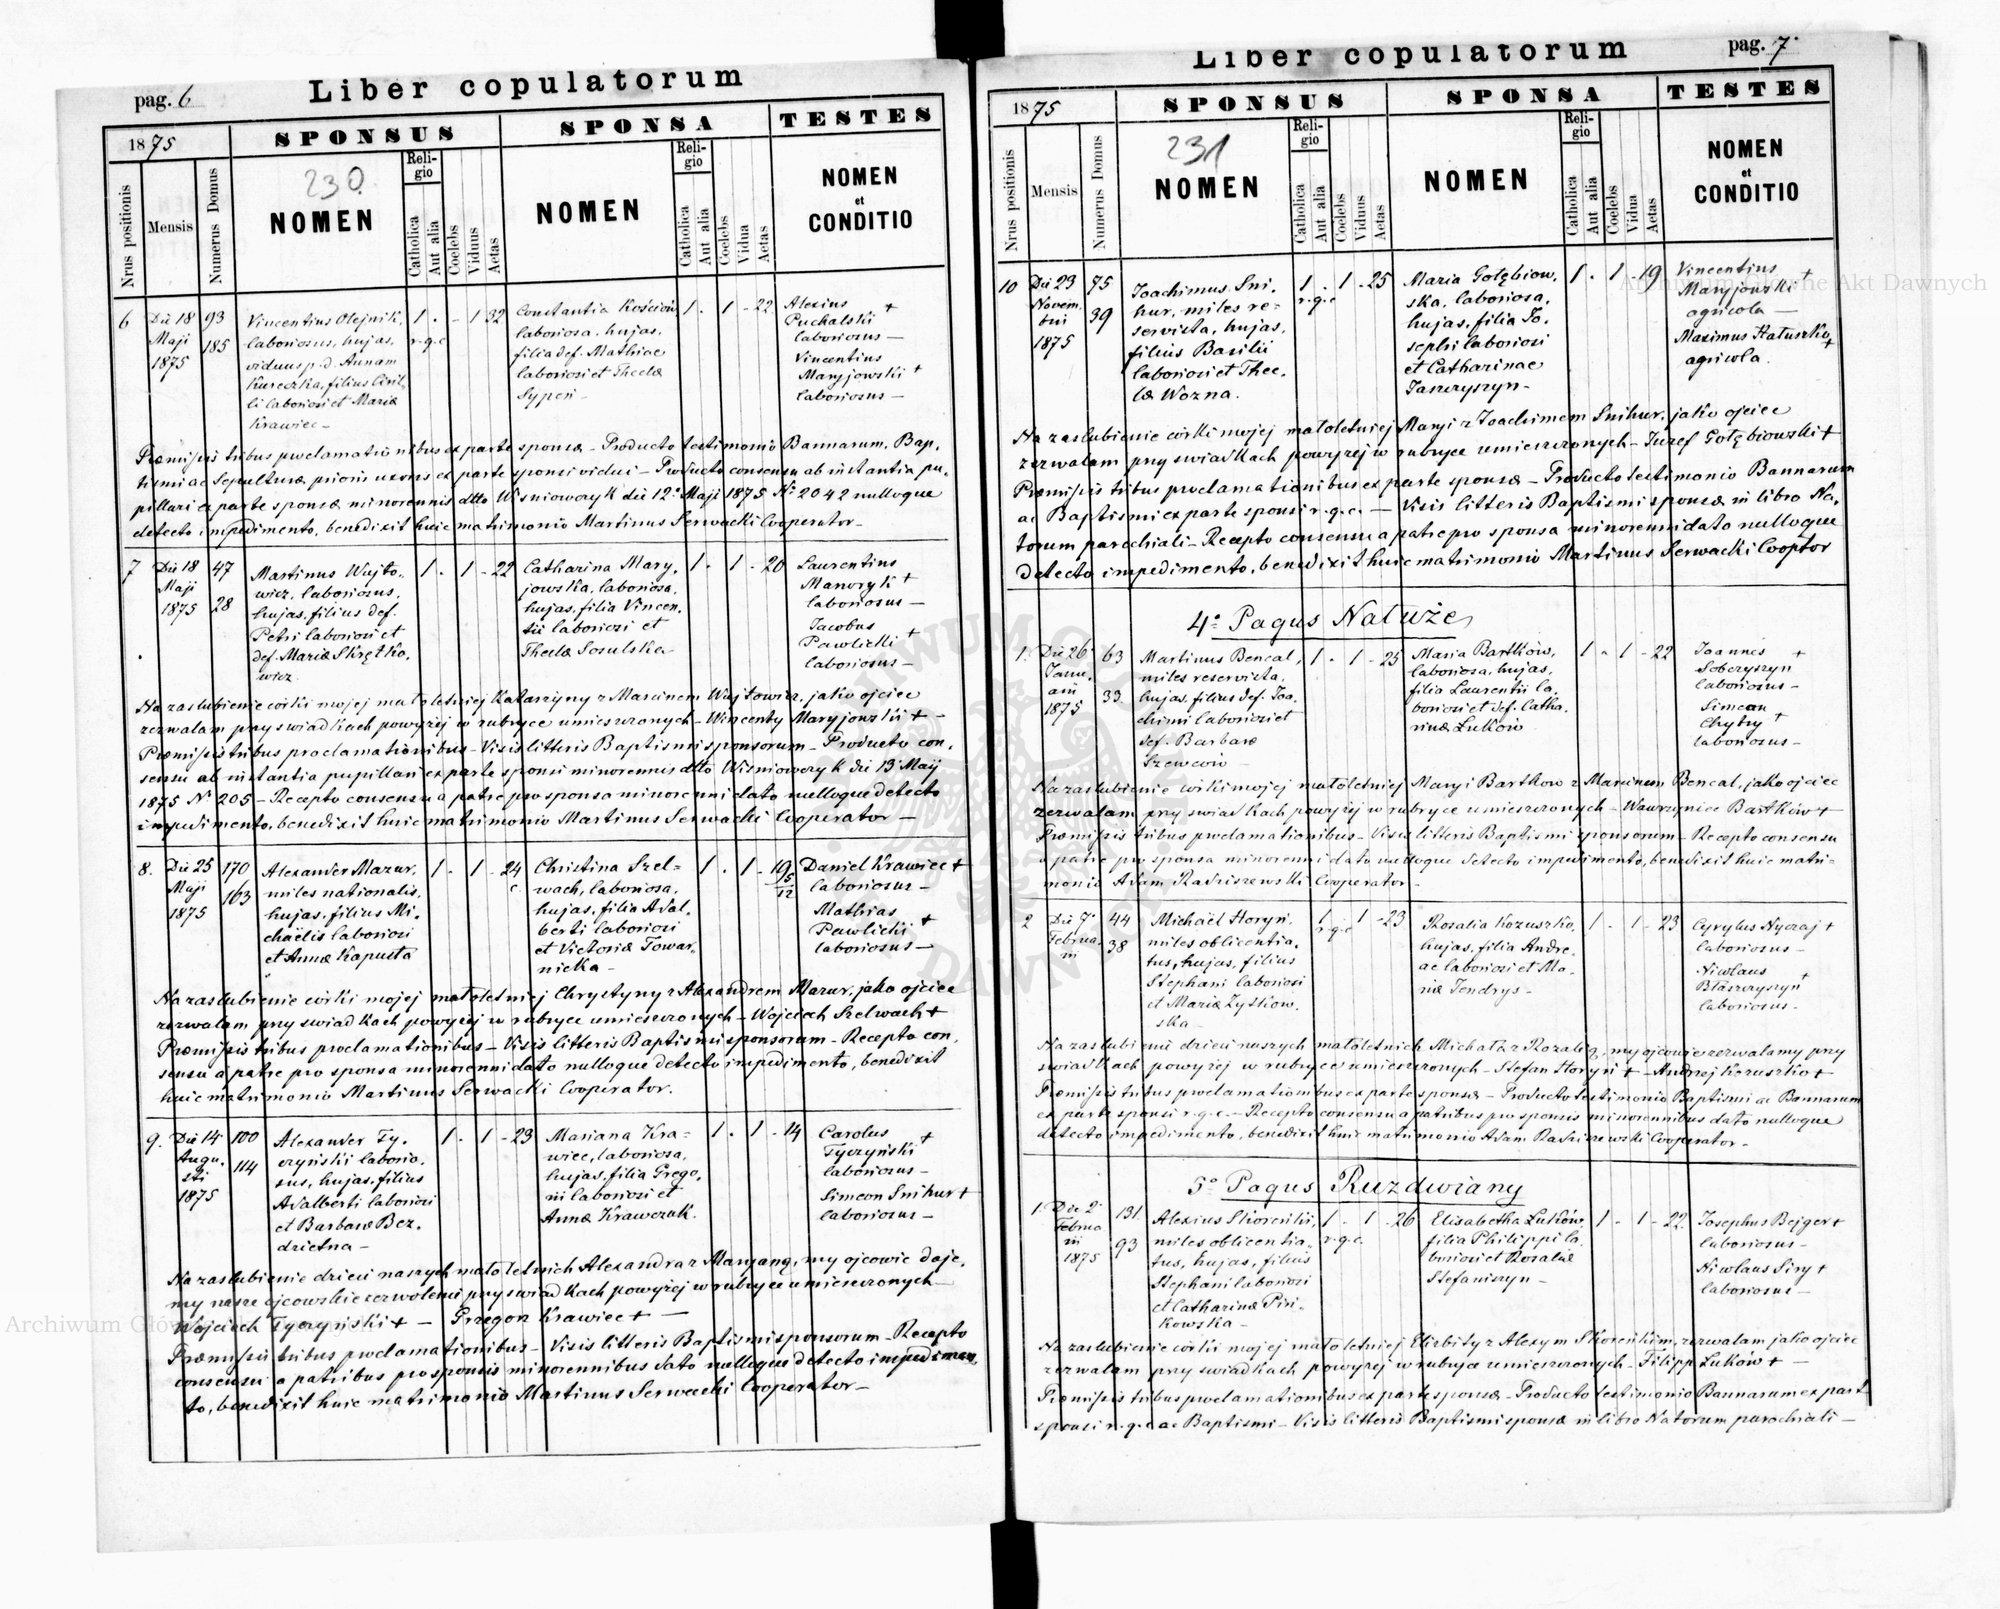 pag. 6
Liber copulatorum
1875
SPONSUS
SPONSA
TESTES
Nrus positionis
Mensis
Numerus Domus
230.
NOMEN
Religio
Catholica
Aut alia
Coelebs
Viduus
Aetas
NOMEN
Religio
Catholica
Aut alia
Coelebs
Vidua
Aetas
NOMEN
et
CONDITIO
6
Die 18
Maji
1875
93
185
Vincentius Olejnik,
laboriosus, hujas,
viduus p. d. Annam
Kureczka, filius
laboriosi et Mariæ
Krawiec –
1 . - 1 32
r.g.c
Constantia Kościów,
laboriosa, hujas,
filia def. Mathiae
laboriosi et Theclæ
Sypeń –
1 . 1 - 22
Alexius +
Puchalski
laboriosus –
Vincentius
Maryjowski +
laboriosus –
Præmissis tribus proclamationibus ex parte sponsæ – Producto testimonio Bannarum, Bap,
tismi ac Sepulturæ, prioris uxoris ex parte sponsi vidui – Producto consensu ab instantia pu,
pillari ex parte sponsæ minorennis dtto Wisniowczyk die 12º Maji 1875 Nº 2042 nulloque
detecto impedimento, benedixit huic matrimonio Martinus Serwacki Cooperator –
7
Die 18
Maji
1875
47
28
Martinus Wujto,
wicz, laboriosus,
hujas, filius def.
Petri laboriosi et
def. Mariæ Skrętko,
wicz.
1 . 1 - 22
Catharina Mary,
jowska, laboriosa,
hujas, filia Vincen,
tii laboriosi et
Theclæ Sosulska –
1 . 1 - 20
Laurentius
Mandryk +
laboriosus –
Jacobus
Pawlicki +
laboriosus –
Na zaslubienie córki mojej małoletniej Katarzyny z Marcinem Wujtowicz, jako ojciec
zezwalam przy swiadkach powyżej w rubryce umieszczonych – Wincenty Maryjowski + –
Præmissis tribus proclamationibus – Visis litteris Baptismi sponsorum – Producto con,
sensu ab instantia pupillari ex parte sponsi minorennis dtto Wisniowczyk die 13 Maij
1875 Nº 205 – Recepto consensu a patre pro sponsa minorenni dato nulloque detecto
impedimento, benedixit huic matrimonio Martinus Serwacki Cooperator –
8.
Die 25
Maji
1875
170
163
Alexander Mazur,
miles nationalis,
hujas, filius Mi,
chaëlis laboriosi
et Annæ Kapusta
1 . 1 - 24
Christina Szel=
wach, laboriosa,
hujas, filia Adal,
berti laboriosi
et Victoriæ Towar,
nicka –
1 . 1 - 19 5/12
Daniel Krawiec +
laboriosus –
Mathias
Pawlicki +
laboriosus –
Na zaslubienie córki mojej małoletniej Chrystyny z Alexandrem Mazur, jako ojciec
zezwalam przy swiadkach powyżej w rubryce umieszczonych – Wojciech Szelwach +
Præmissis tribus proclamationibus – Visis litteris Baptismi sponsorum – Recepto con,
sensu a patre pro sponsa minorenni dato nulloque detecto impedimento, benedixit
huic matrimonio Martinus Serwacki Cooperator.
9.
Die 14
Augu,
sti
1875
100
114
Alexander Ty,
czyński laborio,
sus, hujas, filius
Adalberti laboriosi
et Barbaræ Bez,
dzietna –
1 . 1 - 23
Mariana Kra=
wiec, laboriosa,
hujas, filia Grego,
rii laboriosi et
Annæ Krawczuk.
1 . 1 - 14
Carolus +
Tyczyński
laboriosus –
Simeon Snihur +
laboriosus –
Na zaslubienie dzieci naszych małoletnich Alexandra z Maryanną, my ojcowie daje,
my nasze ojcowskie zezwolenie przy swiadkach powyżej w rubryce umieszczonych –
Wojciech Tyczyński + – Grzegorz Krawiec + –
Præmissis tribus proclamationibus – Visis litteris Baptismi sponsorum – Recepto
consensu a patribus pro sponsis minorennibus dato nulloque detecto impedimen,
to, benedixit huic matrimonio Martinus Serwacki Cooperator –
Liber copulatorum
pag. 7.
1875
SPONSUS
SPONSA
TESTES
Nrus positionis
Mensis
Numerus Domus
231
NOMEN
Religio
Catholica
Aut alia
Coelebs
Viduus
Aetas
NOMEN
Religio
Catholica
Aut alia
Coelebs
Vidua
Aetas
NOMEN
et
CONDITIO
10
Die 23
Novem,
bris
1875
75
39
Joachimus Sni,
hur, miles re,
servista, hujas,
filius Basilii
laboriosi et Thec,
læ Wozna.
1 . 1 - 25
r.g.c
Maria Gołębiow,
ska, laboriosa,
hujas, filia Jo,
sephi laboriosi
et Catharinae
Jaszczyszyn –
1 . 1 - 19
Vincentius +
Maryjowski
agricola –
Maximus Hatuszka +
agricola.
Na zaslubienie córki mojej małoletniej Maryi z Joachimem Snihur, jako ojciec
zezwalam przy swiadkach powyżej w rubryce umieszczonych – Józef Gołębiowski +
Præmissis tribus proclamationibus ex parte sponsæ – Producto testimonio Bannarum
ac Baptismi ex parte sponsi r.g.c. – Visis litteris Baptismi sponsæ in libro Na,
torum parochiali – Recepto consensu a patre pro sponsa minorenni dato nulloque
detecto impedimento, benedixit huic matrimonio Martinus Serwacki Cooptor
4º Pagus Nałuże
1.
Die 26
Janu,
arii
1875
63
33.
Martinus Bencal,
miles reservista,
hujas, filius def. Joa,
chimi laboriosi et
def. Barbaræ
Szewców –
1 . 1 - 25
Maria Bartków,
laboriosa, hujas,
filia Laurentii la,
boriosi et def. Catha,
rinæ Łuków
1 . 1 - 22
Joannes +
Soberyszyn
laboriosus –
Simeon
Chytry +
laboriosus –
Na zaslubienie córki mojej małoletniej Maryi Bartków z Marcinem Bencal, jako ojciec
zezwalam przy swiadkach powyżej w rubryce umieszczonych – Wawrzyniec Bartków +
Præmissis tribus proclamationibus – Visis litteris Baptismi sponsorum – Recepto consensu
a patre pro sponsa minorenni dato nulloque detecto impedimento, benedixit huic matri=
monio Adam Radziszewski Cooperator –
2
Die 7
Februa,
rii
44
38
Michaël Horyń,
miles oblicentia,
tus, hujas, filius
Stephani laboriosi
et Mariæ Zyskow,
ska –
1 . 1 - 23
r.g.c
Rosalia Kozuszko,
hujas, filia Andre,
ae laboriosi et Ma,
riæ Tendrys –
1 . 1 - 23
Cyrylus Nyczaj +
laboriosus –
Nicolaus +
Błaszczyszyn
laboriosus –
Na zaslubienie dzieci naszych małoletnich Michała z Rozalią, my ojcowie zezwalamy przy
swiadkach powyżej w rubryce umieszczonych – Stefan Horyń + – Andrzej Kozuszko +
Præmissis tribus proclamationibus ex parte sponsæ – Producto testimonio Baptismi ac Bannarum
ex parte sponsi r.g.c. – Recepto consensu a patribus pro sponsis minorennibus dato nulloque
detecto impedimento, benedixit huic matrimonio Adam Radziszewski Cooperator –
5º Pagus Ruzdwiany
1.
Die 2
Februa
rii
1875
131.
93
Alexius Skoreński,
miles oblicentia,
tus, hujas, filius
Stephani laboriosi
et Catharinæ Piń,
kowska –
1 . 1 - 26
r.g.c
Elisabetha Łuków,
filia Philippi la,
boriosi et Rosaliæ
Stefaniszyn –
1 . 1 - 22
Josephus Bejger +
laboriosus –
Nicolaus Siry +
laboriosus –
Na zaslubienie córki mojej małoletniej Elzbiety z Alexym Skoreńskim, zezwalam jako ojciec
zezwalam przy swiadkach powyżej w rubryce umieszczonych – Filipp Łuków + –
Præmissis tribus proclamationibus ex parte sponsæ – Producto testimonio Bannarum ex part
sponsi r.g.c ac Baptismi – Visis litteris Baptismi sponsæ in libro Natorum parochiali –
Archiwum Główne Akt Dawnych
Archiwum Główne Akt Dawnych